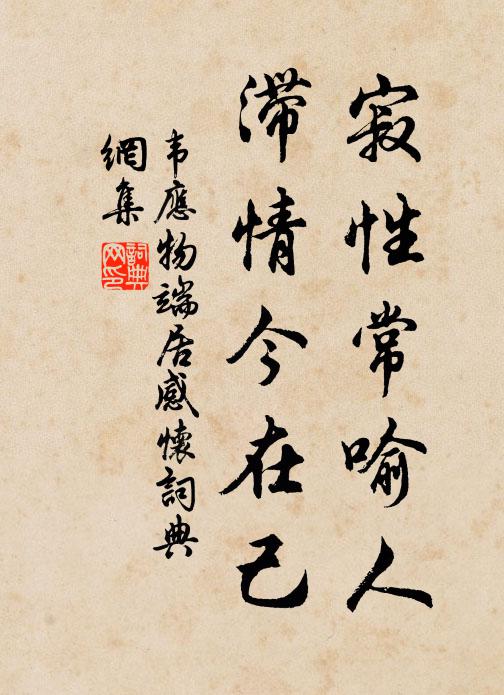 寂性常喻人
滞情今在己
韦應物端居感懷詞典
網集
詞典
网印